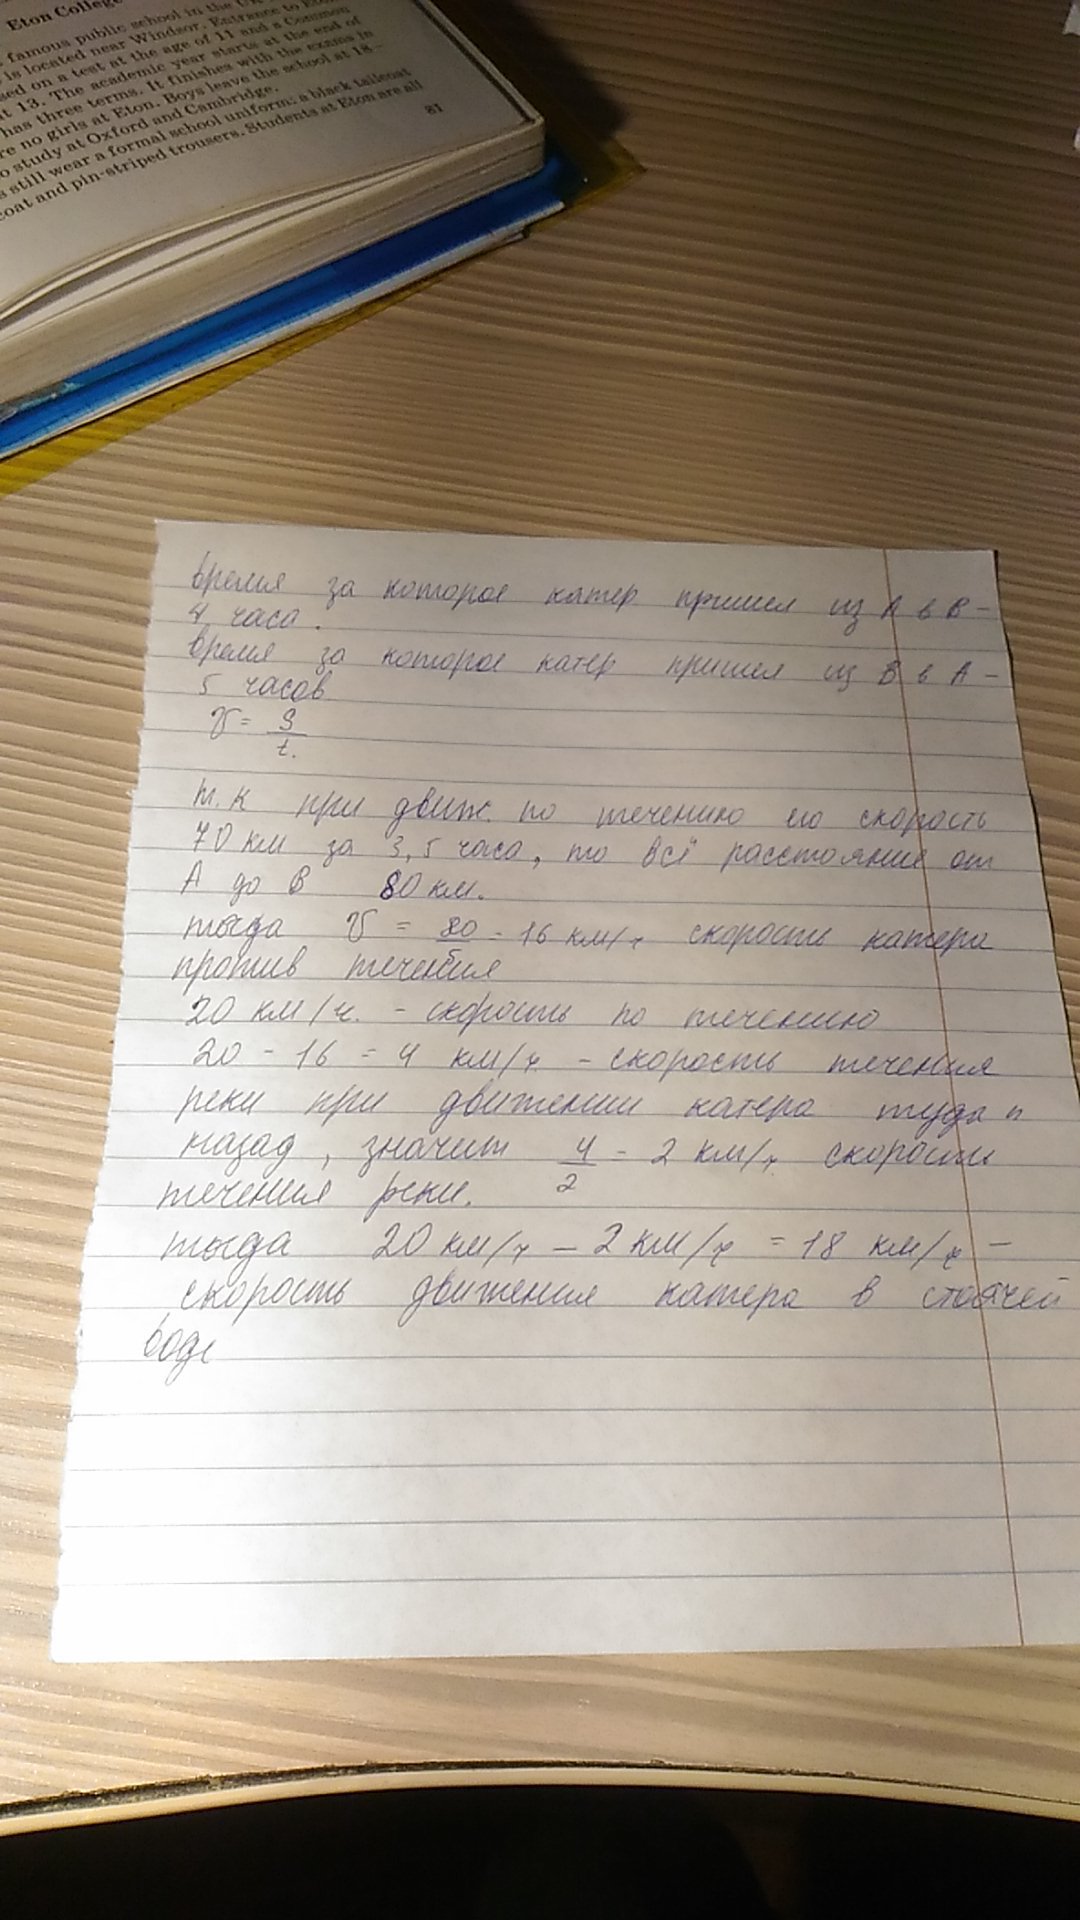 Eton College
famous public school in the UK
is located near Windsor. Entrance to Eton
sed on a test at the age of 11 and a Common
at 13. The academic year starts at the end of
has three terms. It finishes with the exams in
re no girls at Eton. Boys leave the school at 18–
o study at Oxford and Cambridge.
s still wear a formal school uniform: a black tailcoat
coat and pin-striped trousers. Students at Eton are all
81
время за которое катер пришел из А в В –
4 часа.
время за которое катер пришел из В в А –
5 часов
V = S
t.
т.к при движ. по течению его скорость
70 км за 3,5 часа, то всё расстояние от
А до В 80 км.
тогда V = 80 = 16 км/ч скорость катера
против течения
20 км/ч. – скорость по течению
20 – 16 = 4 км/ч – скорость течения
реки при движении катера туда и
назад, значит 4/2 = 2 км/ч скорость
течения реки.
тогда 20 км/ч – 2 км/ч = 18 км/ч –
скорость движения катера в стоячей
воде